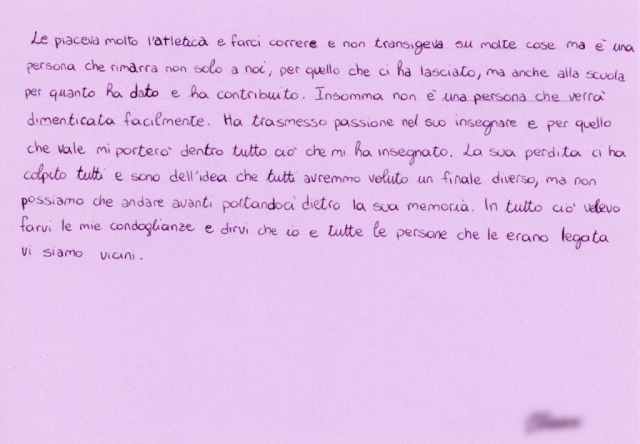 Le piaceva molto l'atletica e farci correre e non transigeva su molte cose ma è una
persona che rimarrà non solo a noi, per quello che ci ha lasciato, ma anche alla scuola
per quanto ha dato e ha contribuito. Insomma non è una persona che verrà
dimenticata facilmente. Ha trasmesso passione nel suo insegnare e per quello
che vale mi porterò dentro tutto ciò che mi ha insegnato. La sua perdita ci ha
colpito tutti e sono dell'idea che tutti avremmo voluto un finale diverso, ma non
possiamo che andare avanti portandoci dietro la sua memoria. In tutto ciò volevo
farvi le mie condoglianze e dirvi che io e tutte le persone che le erano legata
vi siamo vicini.